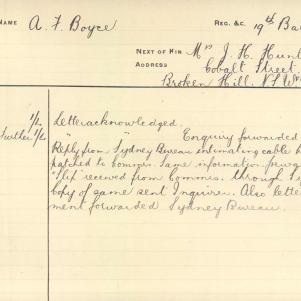 NAME A. F. Boyce REG. &c. 19th Ba
NEXT OF KIN Mrs J. H. Hunt
ADDRESS Cobalt Street
Broken Hill. N.S.W
1/2 Letter acknowledged.
Further 1/2 " " Enquiry forwarded
Reply from Sydney Bureau intimating cable h
patched to Commrs. Same information
"slip" received from Commrs. through Sy
copy of same sent Inquirer. Also lette
ment forwarded Sydney Bureau.